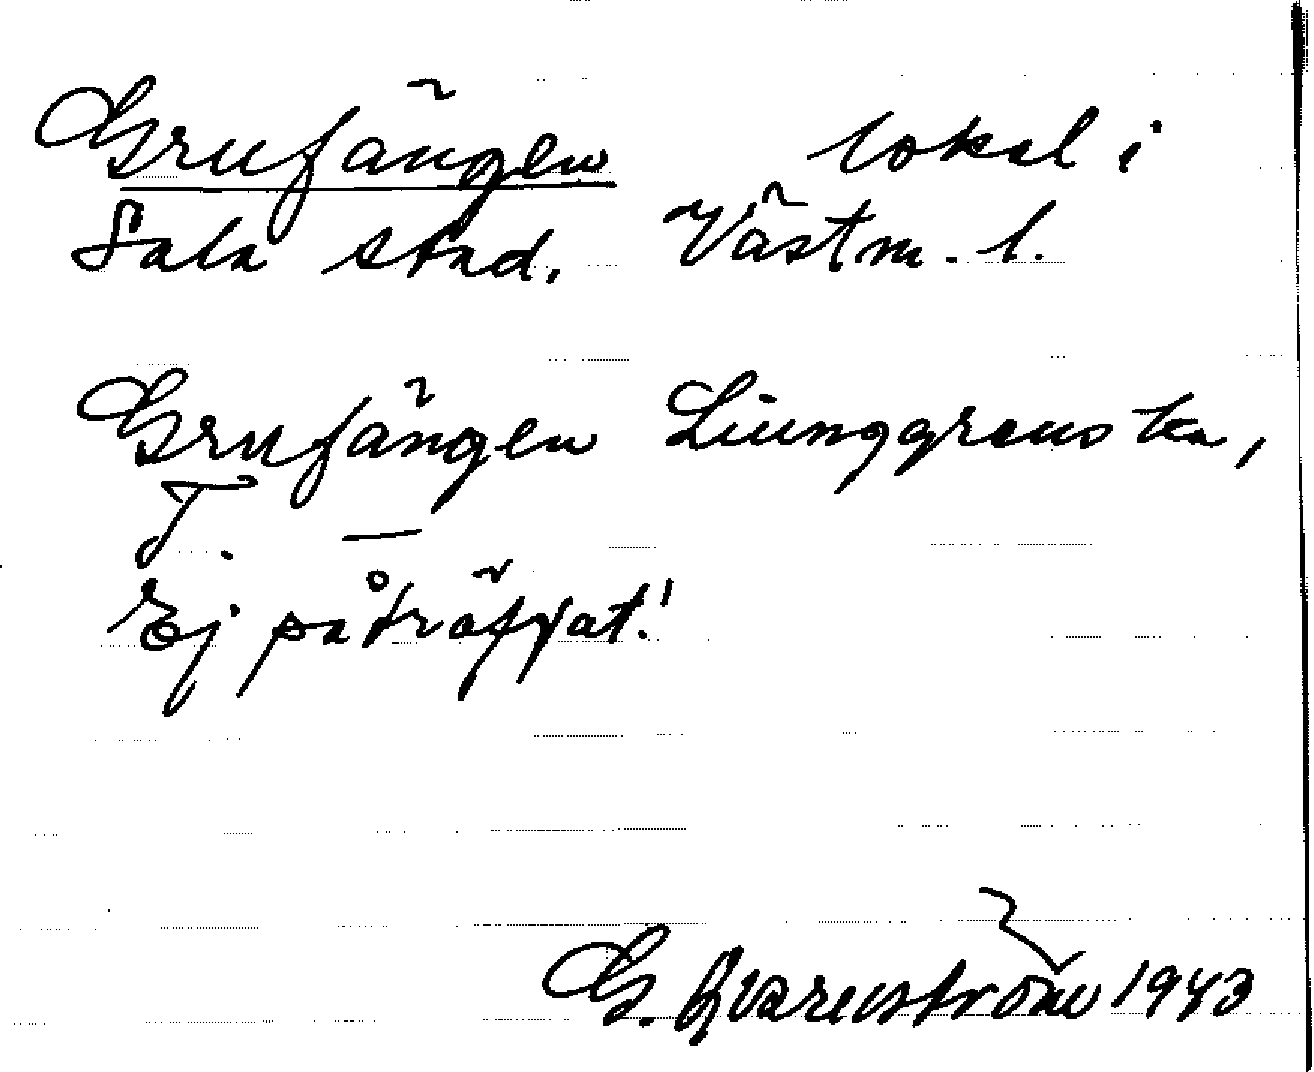 Grufängen lokal i
Sala stad. Västm. l.
Grufängen Liunggrenska,
T. —
Ej påträffat!
G. Qvarnström 1943